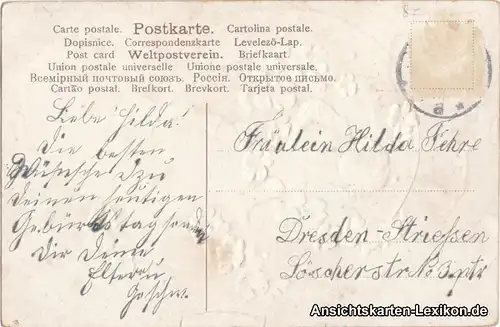 Carte postale. Postkarte. Cartolina postale.
Dopisnice. Correspondenzkarte Levelező-Lap.
Post card Weltpostverein. Briefkaart.
Union postale universelle Unione postale universale.
Всемірный почтовый союзъ. Россія. Открытое письмо.
Cartão postal. Brefkort. Brevkort. Tarjeta postal.
Liebe Hilda!
Die besten
Wünsche zu
Deinen heutigen
Geburtstag senden
Dir Deine
Eltern u
Geschw.
Fräulein Hilda Fehre
Dresden-Striessen
Löscherstr No 3 ptr
Ansichtskarten-Lexikon.de